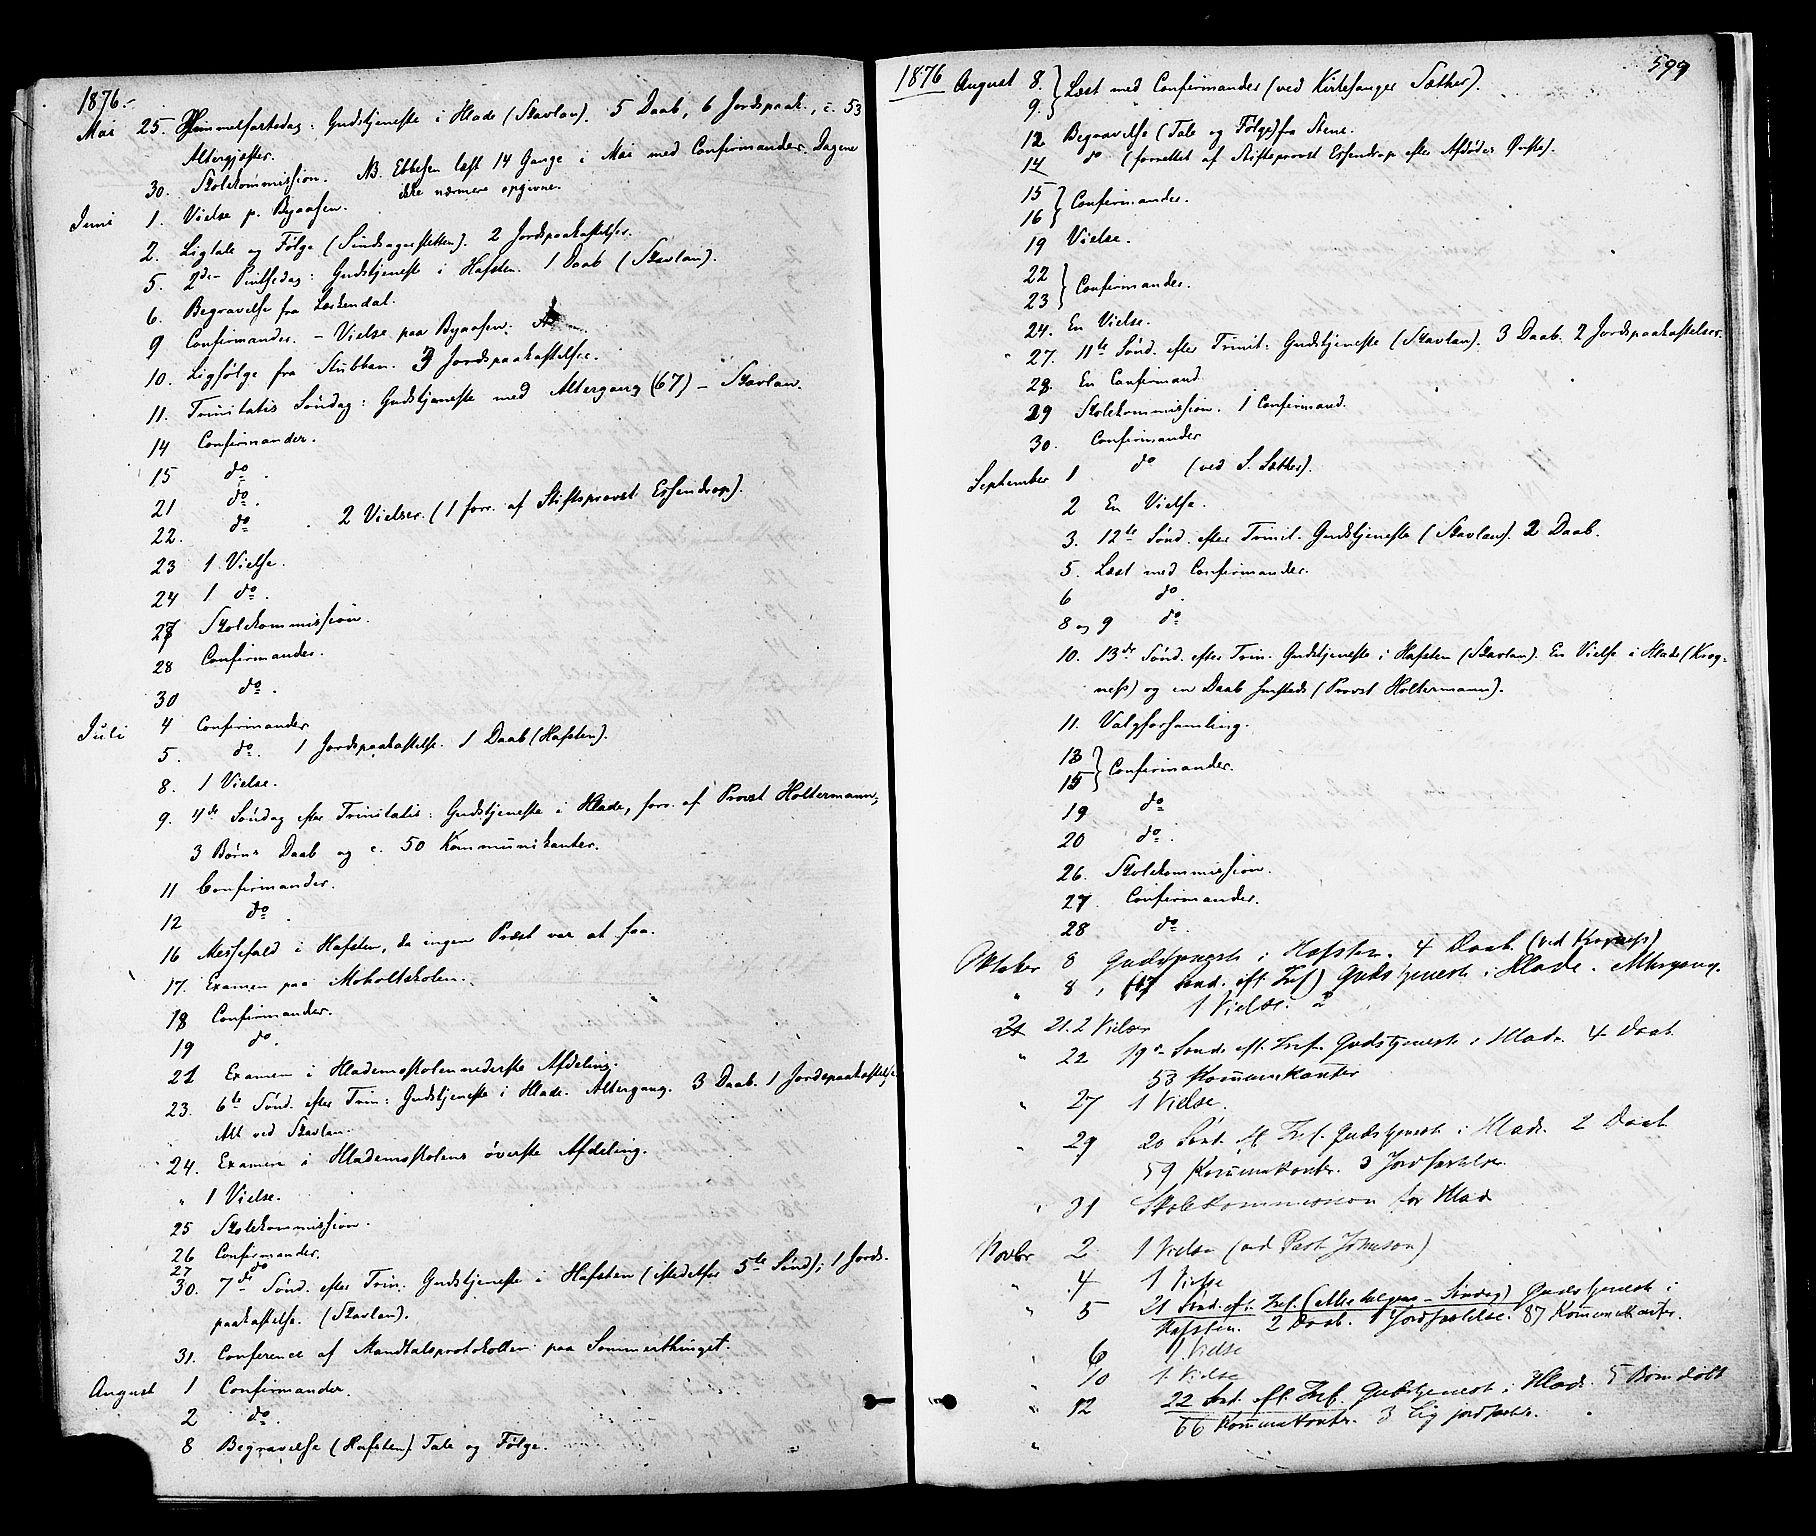 1876.
Mai 25. Himmelfartsdag: Gudstjeneste i Hlade (Skavlan). 5 Daab, 6 Jordspaak., c. 53
Altergjæster.
30. Skolekommission. NB. Ebbesen læst 14 Gange i Mai med Confirmander. Dagene
ikke nærmere opgivne.
Juni 1. Vielse p. Byaasen.
2. Ligtale og Følge. 2 Jordspaakastelser.
5. 2den Pintsedag: Gudstjeneste i Hafsten. 1 Daab (Skavlan).
6. Begravelse fra Leekendal.
9 Confirmander. - Vielse paa Byaasen.
10. Ligfølge fra Stubban. 3 Jordspaakastelse.
11. Trinitatis Søndag: Gudstjeneste med Altergang (67) - Skavlan.
14 Confirmander.
15 do.
21 do.
22. do. 2 Vielser. (1 forr. af Stiftsprovst Essendrop).
23 1 Vielse.
24 1 do.
27 Skolekommission.
28 Confirmander.
30 do.
Juli 4 Confirmander
5. do. 1 Jordspaakastelse. 1 Daab (Hafsten).
8. 1 Vielse.
9. 4de Søndag efter Trinitatis: Gudstjeneste i Hlade, forr. af Provst Holtermann,
3 Børns Daab og c. 50 Kommunikanter.
11 Confirmander.
12 do.
16 Messefald i Hafsten, da ingen Præst var at faa.
17. Examen paa Moholtskolen.
18 Confirmander.
19 do.
21 Examen i Hladesskolens nederste Afdeling.
23. 6te Sønd. efter Trin: Gudstjeneste i Hlade. Altergang. 3 Daab. 1 Jordspaakastelse
Alt ved Skavlan.
24. Examen i Hladesskolens øverste Afdeling.
" 1 Vielse.
25 Skolekommission.
26 Confirmander.
27 do
30. 7de Sønd. efter Trin. Gudstjeneste i Hafsten (istedetfor 5te Sønd); 1 Jords-
paakastelse. (Skavlan).
31. Conference af Mandtalsprotokollen paa Sommerthinget.
August 1 Confirmander.
2 do.
8 Begravelse (Hafsten) Tale og Følge.
599
1876 August 8. 9. } Læst med Confirmander (ved Kirkesanger Sæther).
12 Begravelse (Tale og Følge) fra Stene.
14 do (forrettet af Stiftsprovst Essendrop efter Afdødes Ønske).
15 16 } Confirmander.
19 Vielse.
22 23 } Confirmander.
24. En Vielse.
" 27. 11te Sønd. efter Trinit: Gudstjeneste (Skavlan). 3 Daab. 2 Jordspaakastelser.
28. En Confirmand.
29 Skolekommission. 1 Confirmand.
30. Confirmander
September 1 do (ved S. Sæther).
2 En Vielse.
3. 12te Sønd. efter Trinit. Gudstjeneste (Skavlan). 2 Daab.
5. Læst med Confirmander.
6 do.
8 og 9 do
10. 13de Sønd. efter Trin. Gudstjeneste i Hafsten (Skavlan). En Vielse i Hlade (Krog-
ness) og en Daab sammesteds (Provst Holtermann).
11. Valgforsamling.
13 15 } Confirmander.
19 do
20 do.
26. Skolekommission.
27. Confirmander.
28 do.
Oktober 8 Gudstjeneste i Hafsten. 4 Daab. (ved Krogness)
" 8 Sønd. eft. Tref) Gudstjeneste i Hlade. Altergang.
1 Vielse.
21. 2 Vielser
" 22 19de Sønd. eft. Tref. Gudstjeneste i Hlade. 4 Daab
53 Kommunikanter
" 27 1 Vielse.
" 29 20 Sønd. eft. Tref. Gudstjeneste i Hlade. 2 Daab
59 Kommunikanter. 3 Jordfæstelser.
" 31 Skolekommission for Hlade
Novbr 2 1 Vielse (ved Past. Johnson)
" 4 1 Vielse
" 5 21 Sønd. eft. Tref. (Allehelgens-Søndag) Gudstjeneste i
Hafsten. 2 Daab. 1 Jordfæstelse. 87 Kommunikanter.
" 6 1 Vielse
" 10 1 Vielse
" 12 22 Sønd. eft. Tref. Gudstjeneste i Hlade. 5 Børn døbt
66 Kommunikanter. 3 Lig jordfæstet.
"